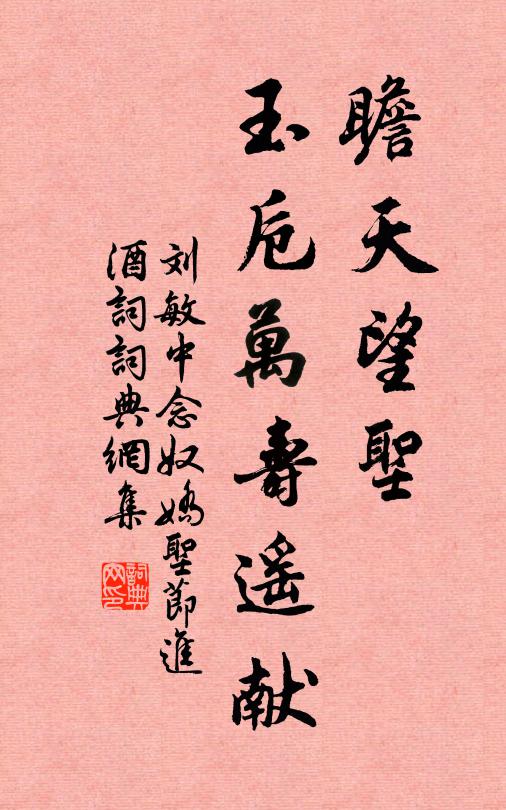 瞻天望聖
玉卮萬壽遥献
刘敏中念奴嬌聖節進
酒詞詞典網集
詞典
网印